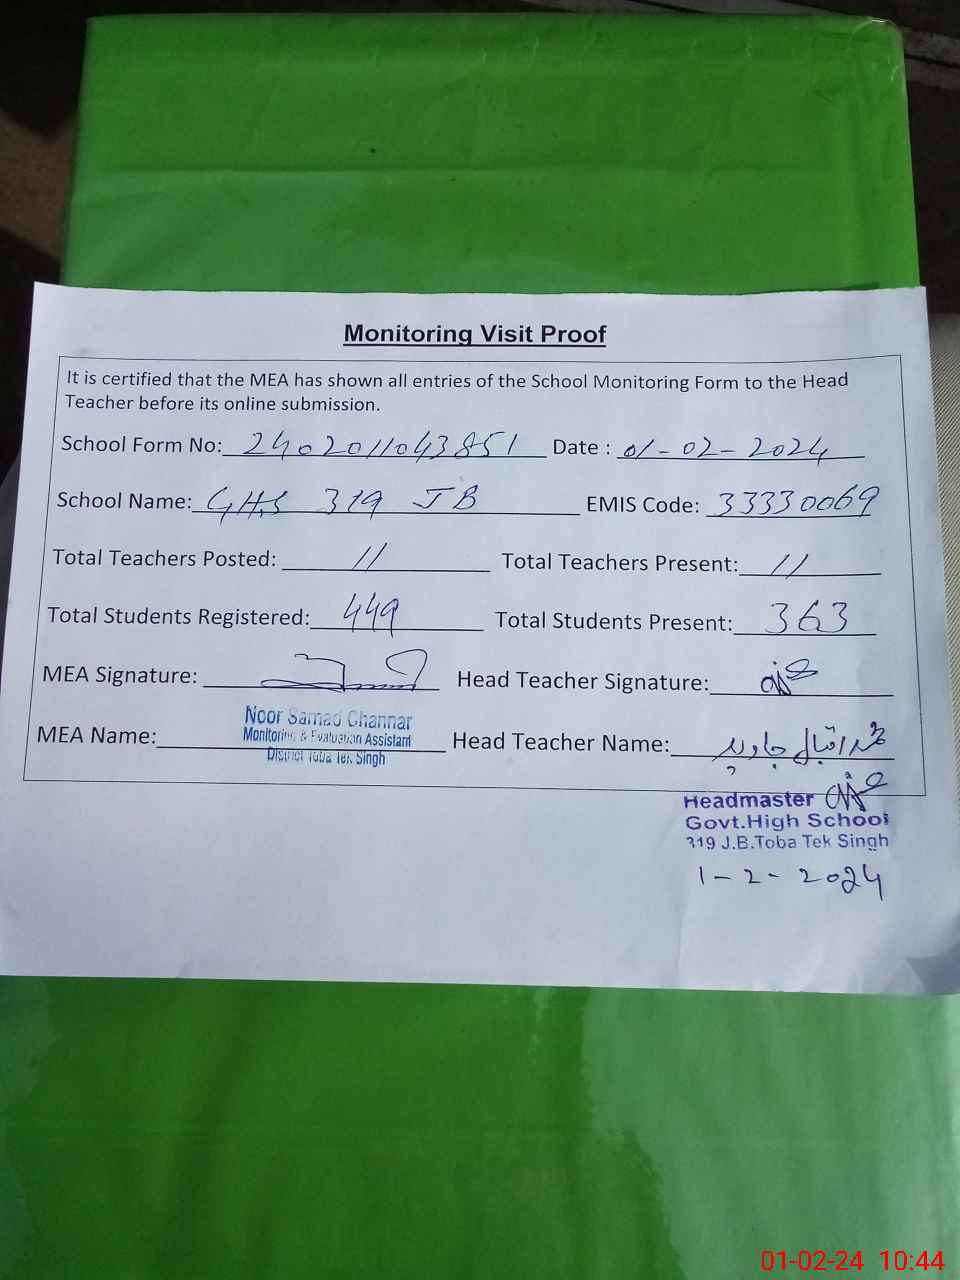 Monitoring Visit Proof
It is certified that the MEA has shown all entries of the School Monitoring Form to the Head
Teacher before its online submission.
School Form No: 2402011043851 Date : 01-02-2024
School Name: GHS 319 JB EMIS Code: 33330069
Total Teachers Posted: 11 Total Teachers Present: 11
Total Students Registered: 449 Total Students Present: 363
MEA Signature: Head Teacher Signature:
MEA Name: Noor Samad Channar Head Teacher Name: محمد اقبال جاوید
Monitoring & Evaluation Assistant
District Toba Tek Singh
Headmaster
Govt.High School
319 J.B.Toba Tek Singh
1-2-2024
01-02-24 10:44